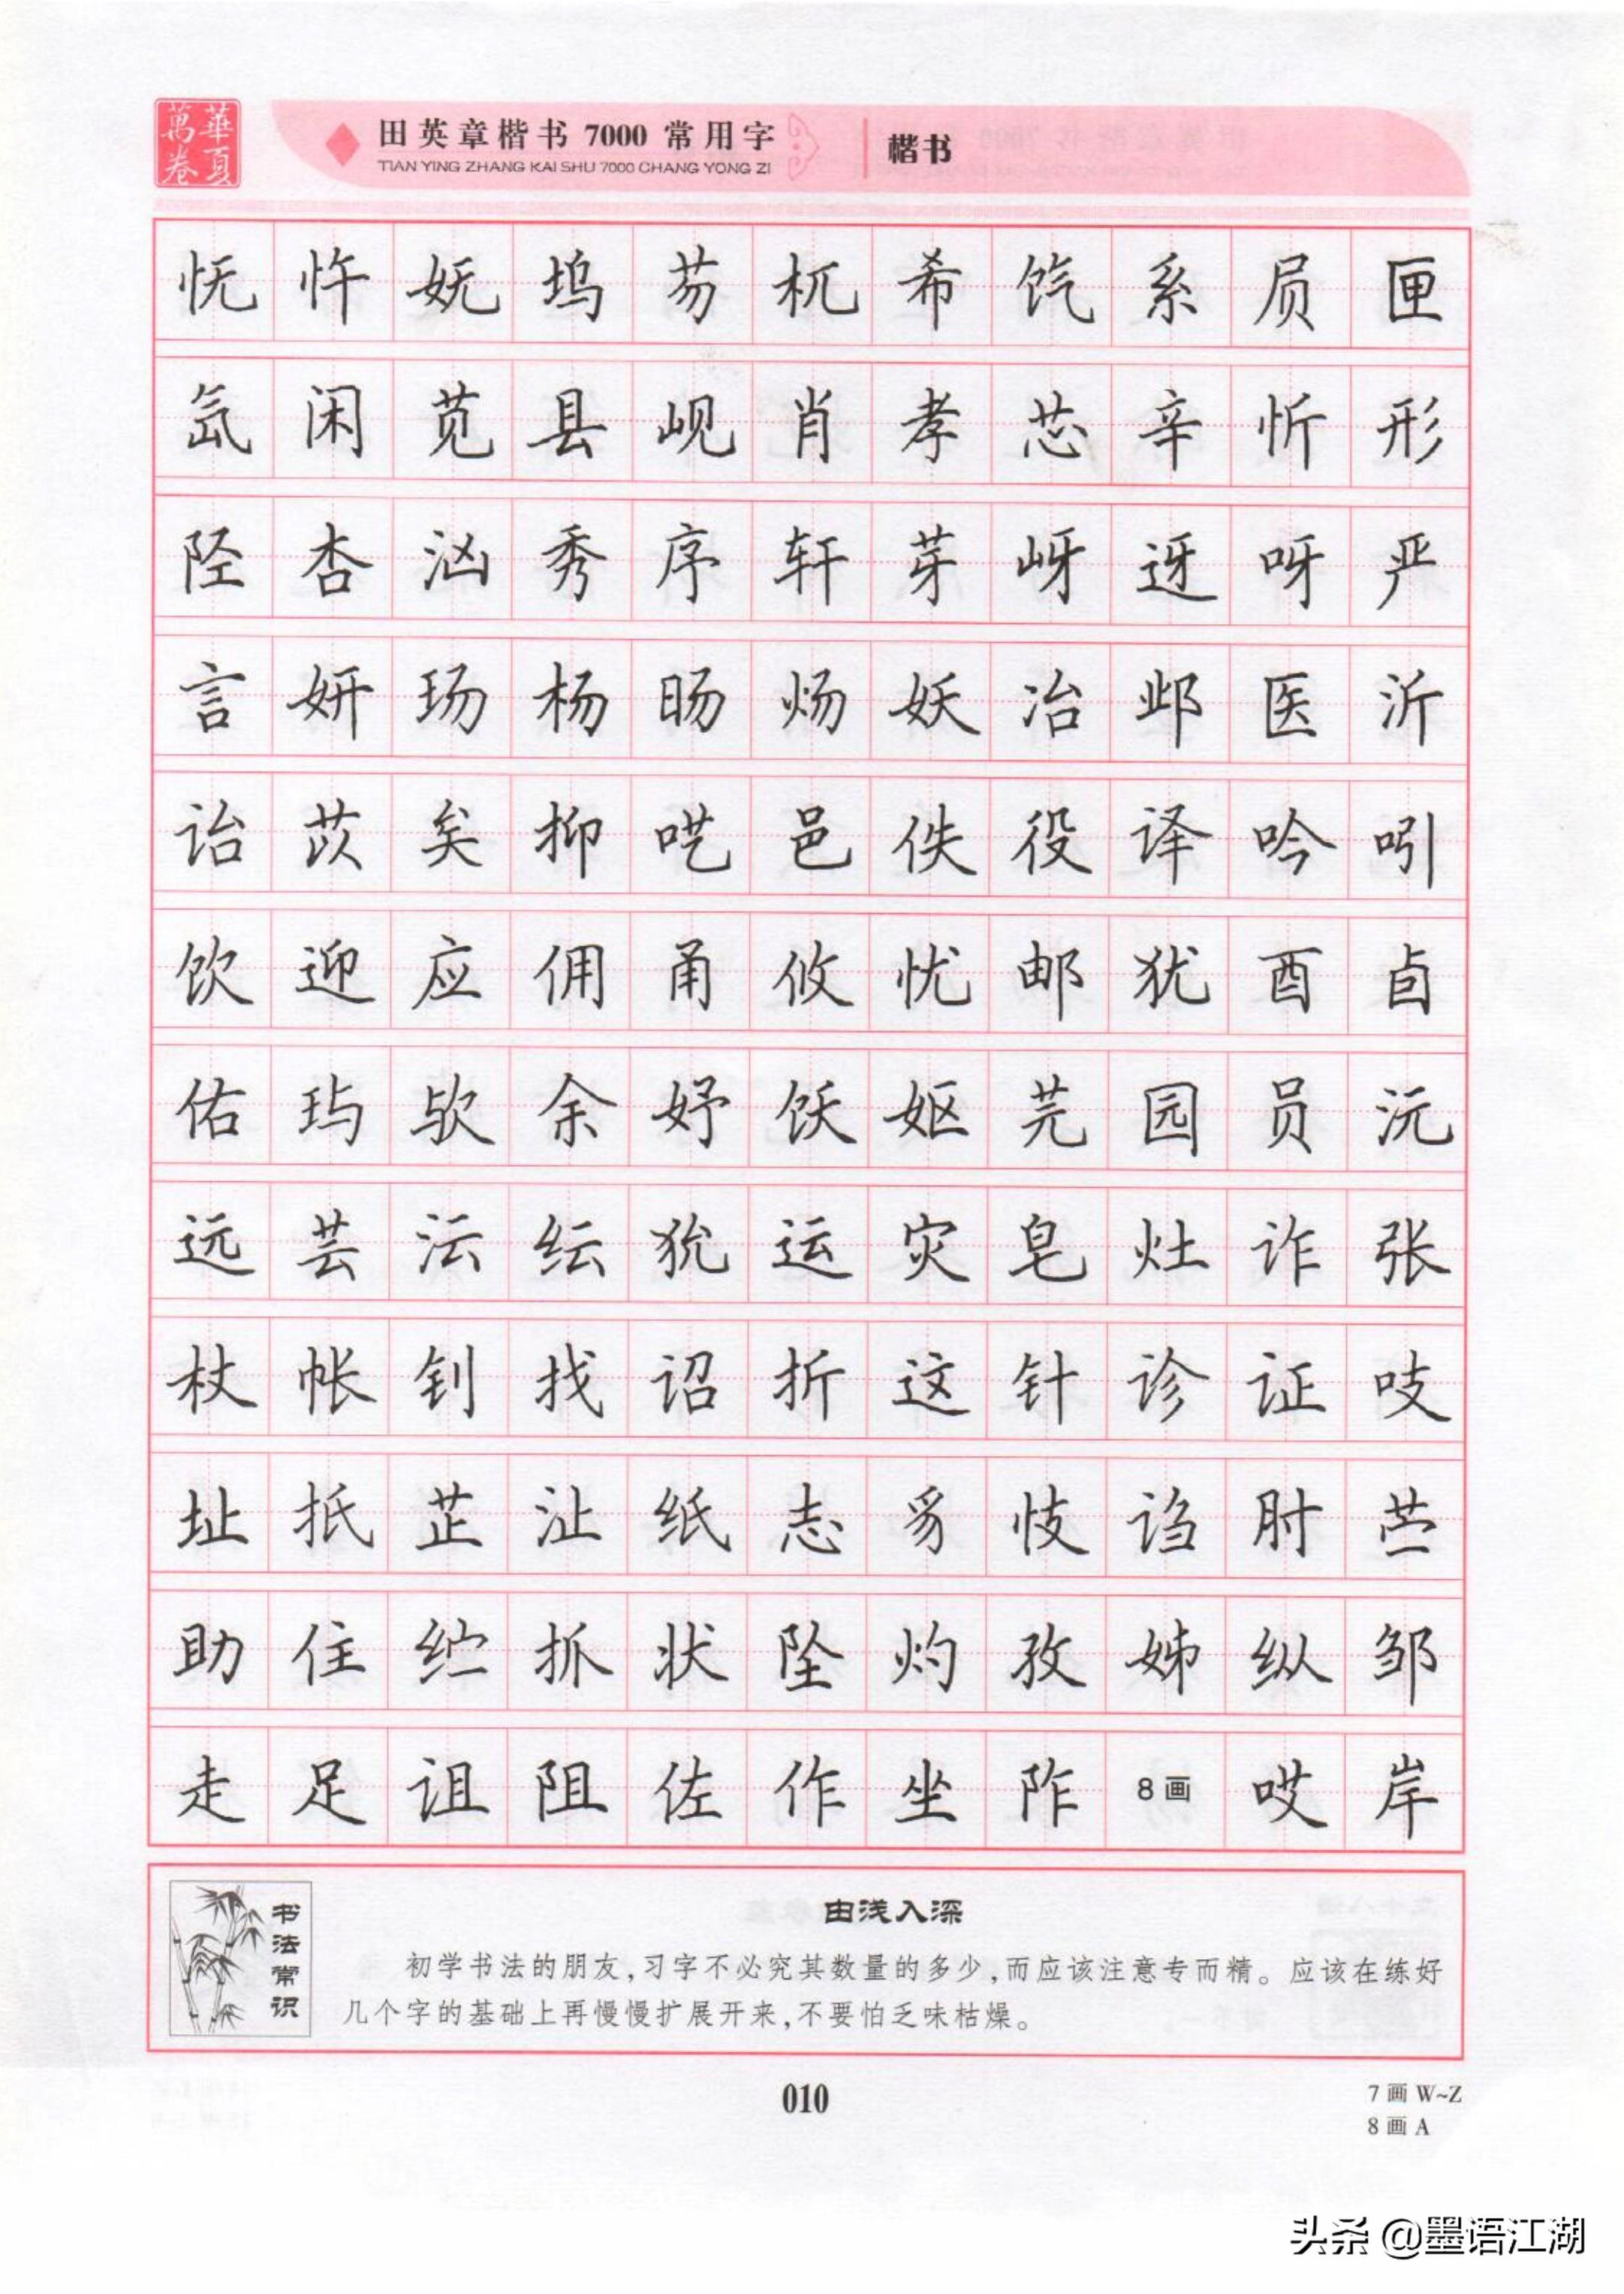 華夏萬卷
田英章楷书 7000 常用字
TIAN YING ZHANG KAI SHU 7000 CHANG YONG ZI
楷书
怃 忤 妩 坞 芴 杌 希 饩 系 屃 匣
氙 闲 苋 县 岘 肖 孝 芯 辛 忻 形
陉 杏 汹 秀 序 轩 芽 岈 迓 呀 严
言 妍 玚 杨 旸 炀 妖 冶 邺 医 沂
诒 苡 矣 抑 呓 邑 佚 役 译 吟 吲
饮 迎 应 佣 甬 攸 忧 邮 犹 酉 卣
佑 玙 欤 余 妤 饫 妪 芫 园 员 沅
远 芸 沄 纭 狁 运 灾 皂 灶 诈 张
杖 帐 钊 找 诏 折 这 针 诊 证 吱
址 抵 芷 沚 纸 志 豸 忮 诌 肘 苎
助 住 纻 抓 状 坠 灼 孜 姊 纵 邹
走 足 诅 阻 佐 作 坐 阼 8画 哎 岸
书法常识
由浅入深
初学书法的朋友,习字不必究其数量的多少,而应该注意专而精。应该在练好
几个字的基础上再慢慢扩展开来,不要怕乏味枯燥。
010
7画 W~Z
8画 A
头条 @墨语江湖